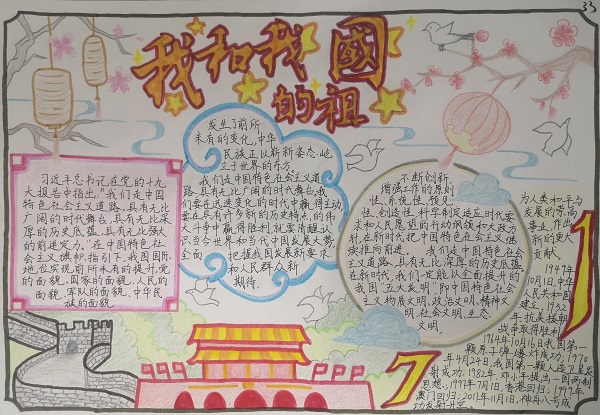 33
我和我的祖國
习近平总书记在党的十九
大报告中指出："我们走中国
特色社会主义道路，具有无比
广阔的时代舞台，具有无比深
厚的历史底蕴，具有无比强大
的前进定力。"在中国特色社
会主义旗帜指引下，我国国际
地位实现前所未有的提升，党
的面貌，国家的面貌，人民的
面貌，军队的面貌，中华民
族的面貌，
发生了前所
未有的变化，中华
民族正以崭新姿态屹
立于世界的东方
我们在中国特色社会主义道
路，具有无比广阔的时代舞台，我
们要在迅速变化的时代中赢得主动，
要在具有许多新的历史特点的伟
大斗争中赢得胜利，就要清醒认
识当今世界和当代中国发展大势，
全面
把握我国发展新要求
和人民群众新
期待。
不断创新，
增强工作的原则
性、系统性、预见
性、创造性，科学制定适应时代要
求和人民愿望的行动纲领和大政方
针，在新时代把中国特色社会主义继
续推向前进。我们走中国特色社
会主义道路，具有无比深厚的历史底蕴，
在新时代，我们一定能以全面提升的
我国"五大文明"，即中国特色社会
主义物质文明、政治文明、精神文
明、社会文明、生态
文明，
为人类和平与
发展的崇高
事业作出
新的更大
贡献。
1947年
10月1日，中华
人民共和国
建立，1952
年抗美援朝
战争取得胜利
1964年10月16日我国第一
颗原子弹爆炸成功，1970
年4月24日，我国第一颗人造卫星发
射成功，1982年邓小平提出一国两制
思想，1997年7月1日，香港回归，1999年
澳门回归，2011年11月1日，神舟八号成
功发射升空
1
7